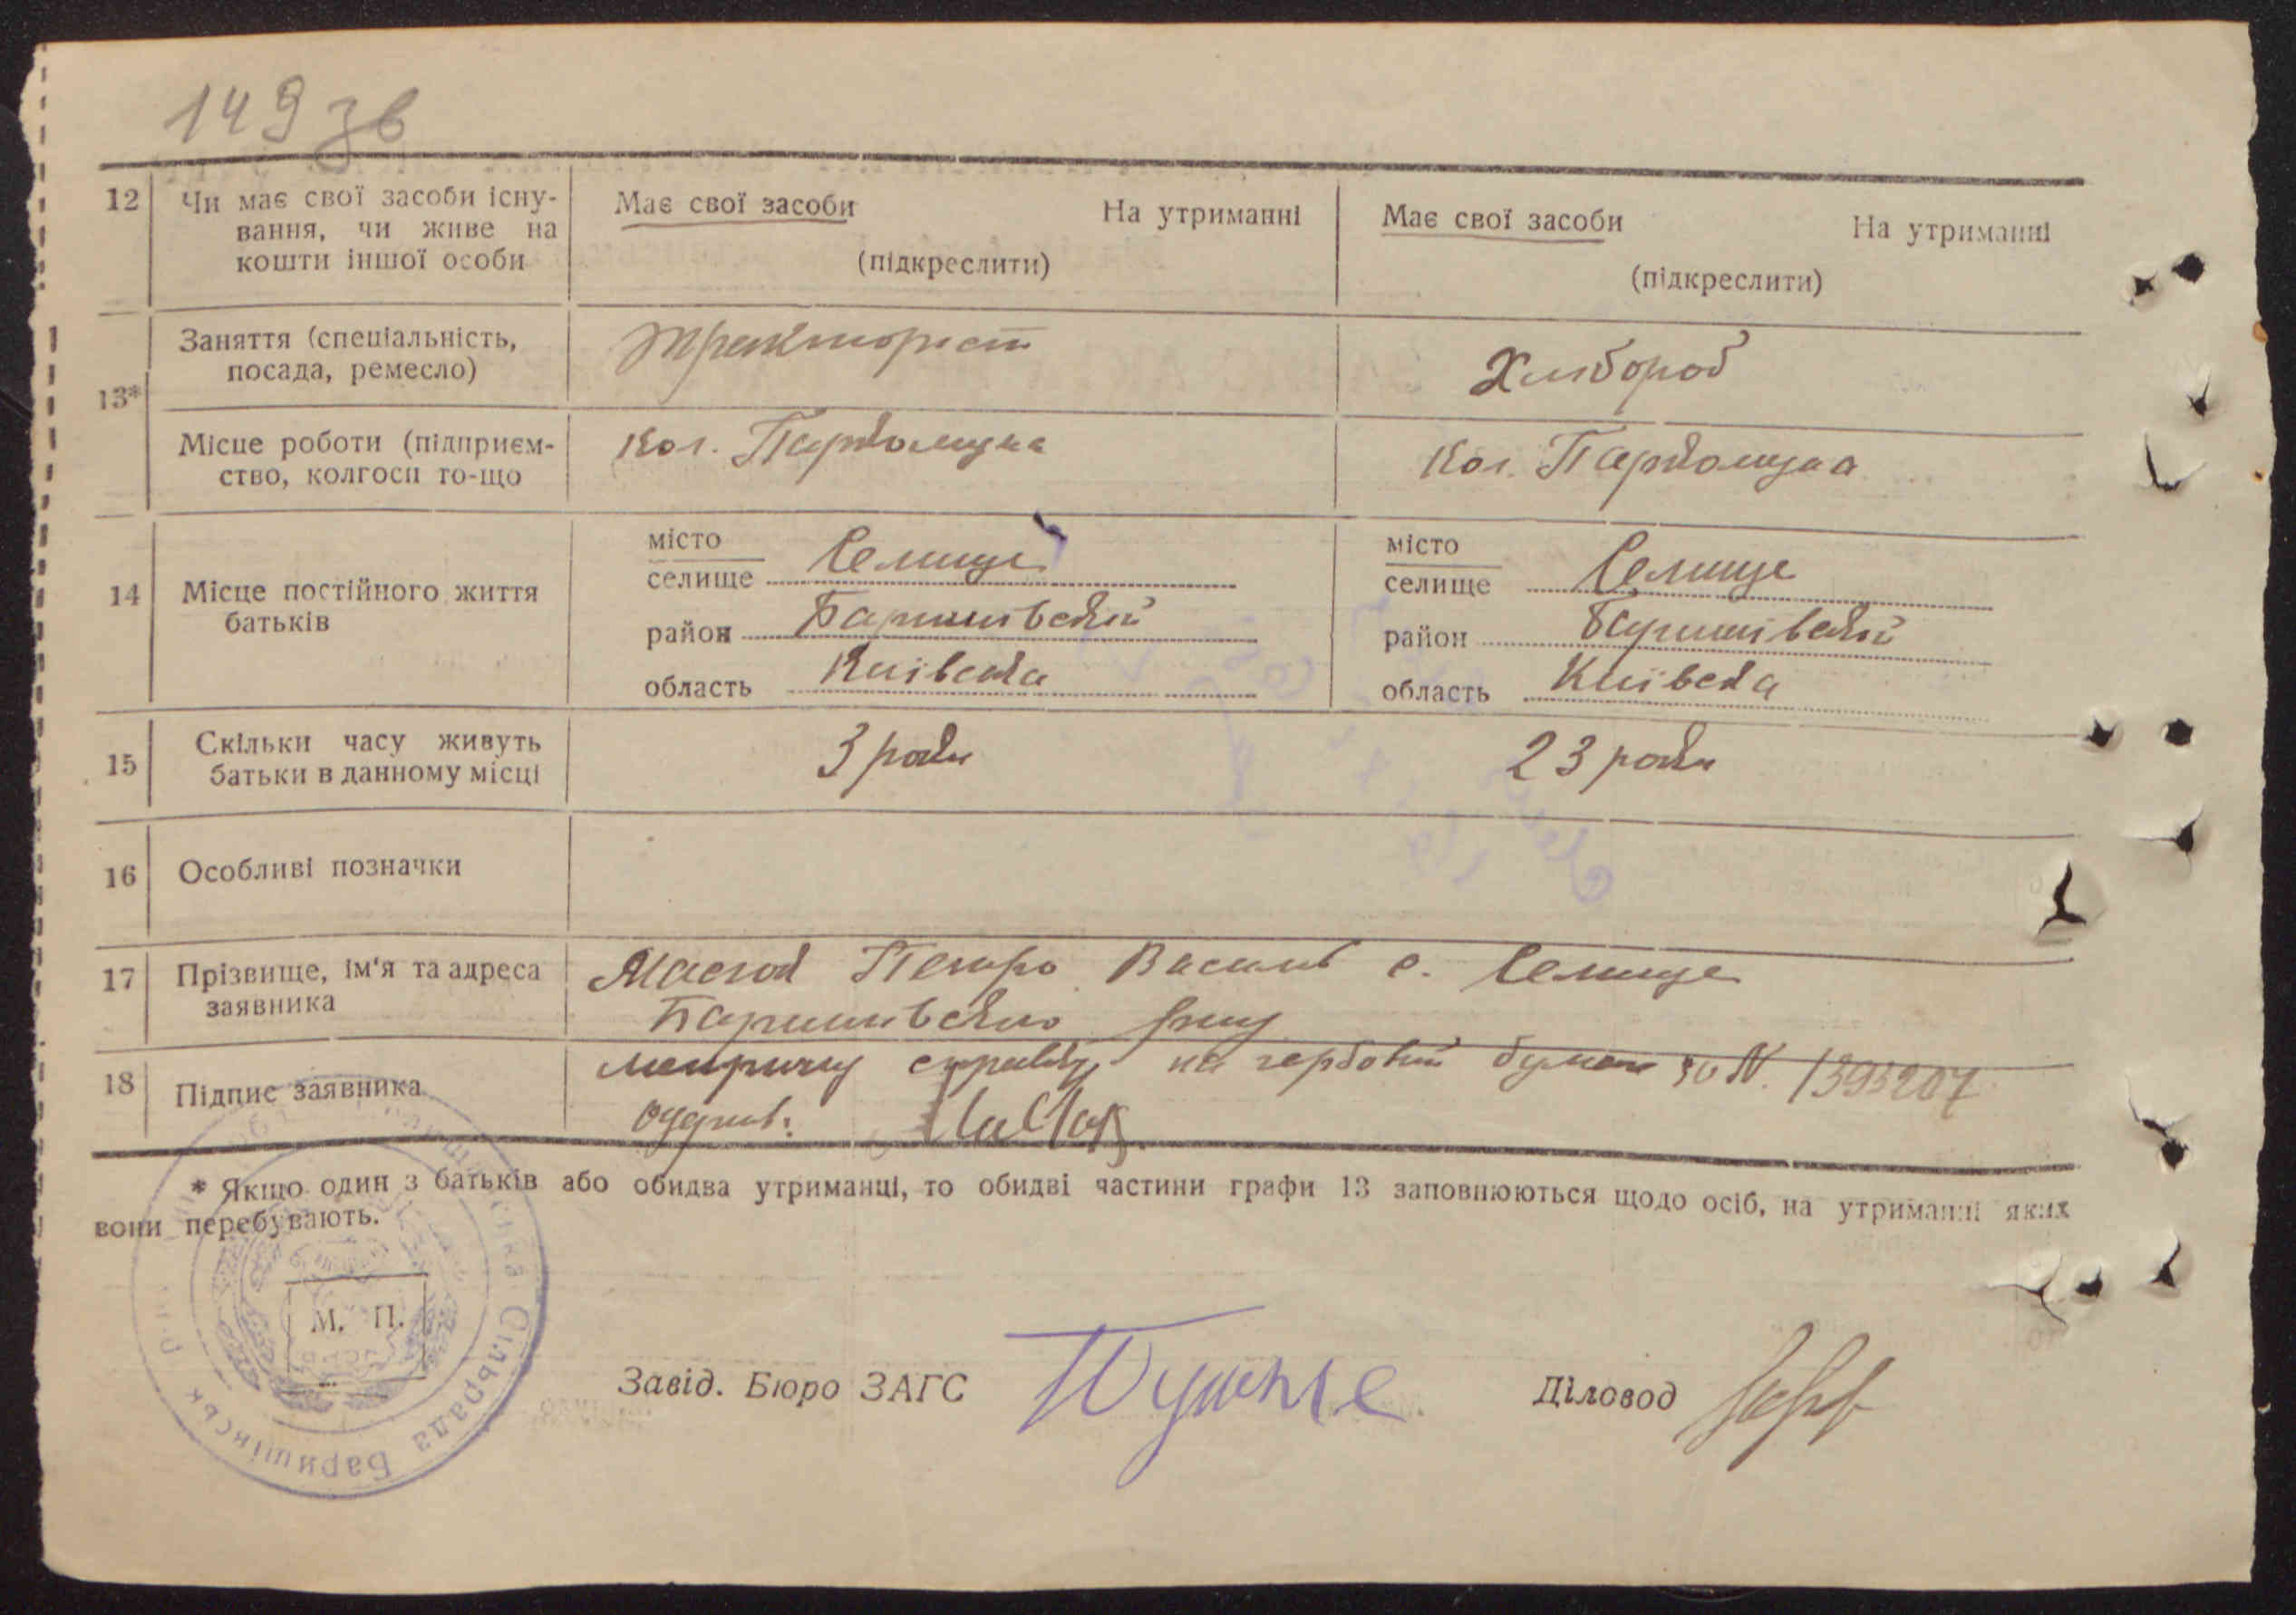 149 зв
12 Чи має свої засоби існу-
вання, чи живе на
кошти іншої особи
Має свої засоби На утриманні
(підкреслити)
Має свої засоби На утриманні
(підкреслити)
13*
Заняття (спеціальність,
посада, ремесло)
Тракторист
Хлібороб
Місце роботи (підприєм-
ство, колгосп то-що
Кол.
Кол.
14 Місце постійного життя
батьків
місто
селище Селище
район Баришівський
область Київська
місто
селище Селище
район Баришівський
область Київська
15 Скільки часу живуть
батьки в данному місці
3 роки
23 роки
16 Особливі позначки
17 Прізвище, ім'я та адреса
заявника
Петро Василів с. Селище
Баришівсько р-ну
18 Підпис заявника
на гербовій за N. 1393207
* Якщо один з батьків або обидва утриманці, то обидві частини графи 13 заповнюються щодо осіб, на утриманні яких
вони перебувають.
М. П.
Сільрада Баришівськ
Завід. Бюро ЗАГС
Діловод